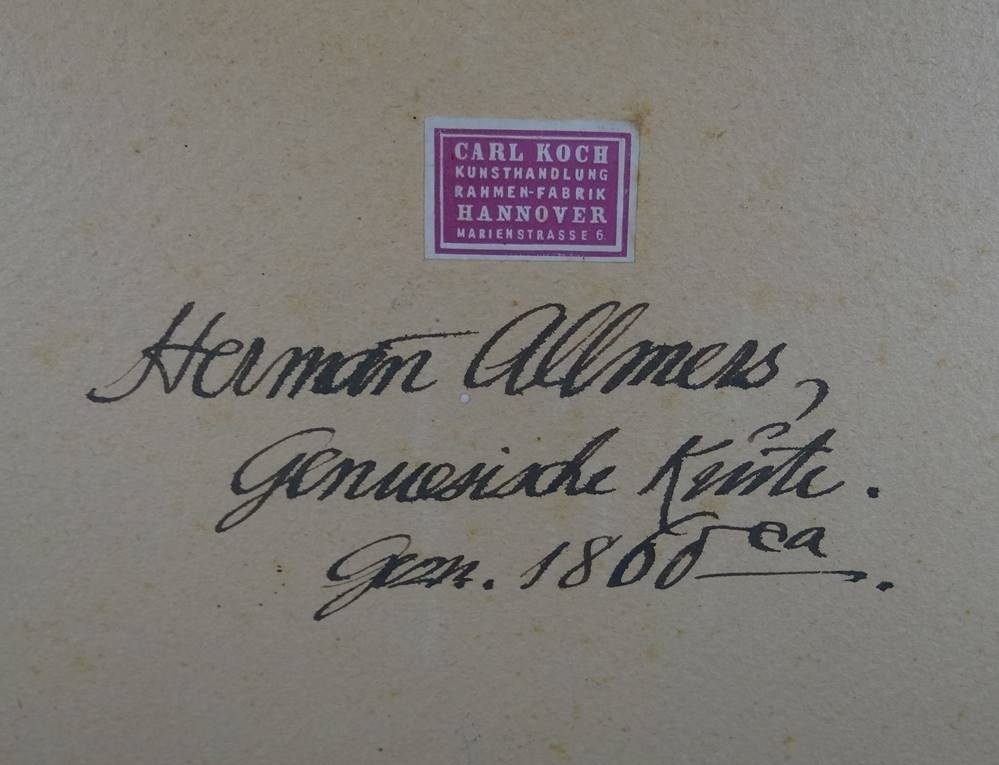 CARL KOCH
KUNSTHANDLUNG
RAHMEN-FABRIK
HANNOVER
MARIENSTRASSE 6.
Herman̅ Allmers,
Genuesische Küste.
Gem. 1860 ca.